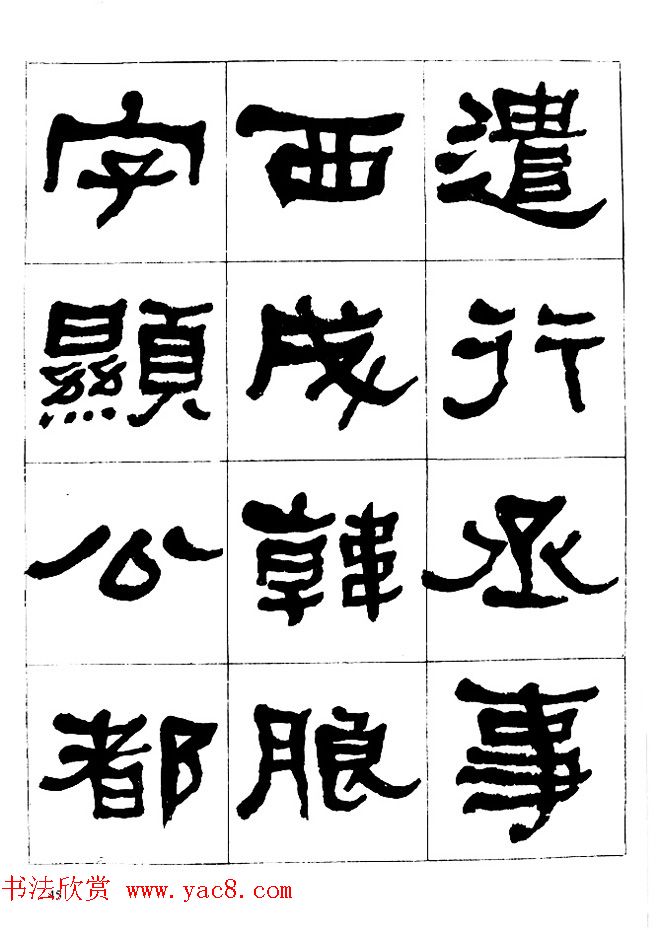 遣行丞事
西成韓朖
字顯公都
45
书法欣赏 www.yac8.com